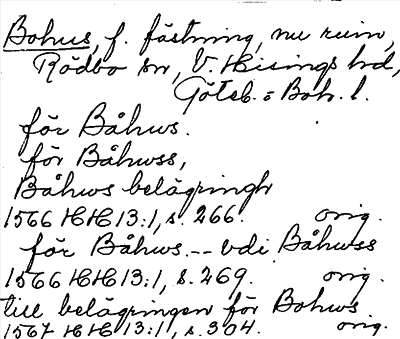 Bohus, f. fästning, nu ruin,
Rödbo sn, V. Hisings hd,
Göteb. o Boh. l.
för Båhws.
för Båhwss,
Båhws belägringh
1566 HH 13:1, s. 266. orig.
för Båhws. -- vdi Båhwss
1566 HH 13:1, s. 269. orig.
till belägringen för Bohws
1567 HH 13:1, s. 304. orig.